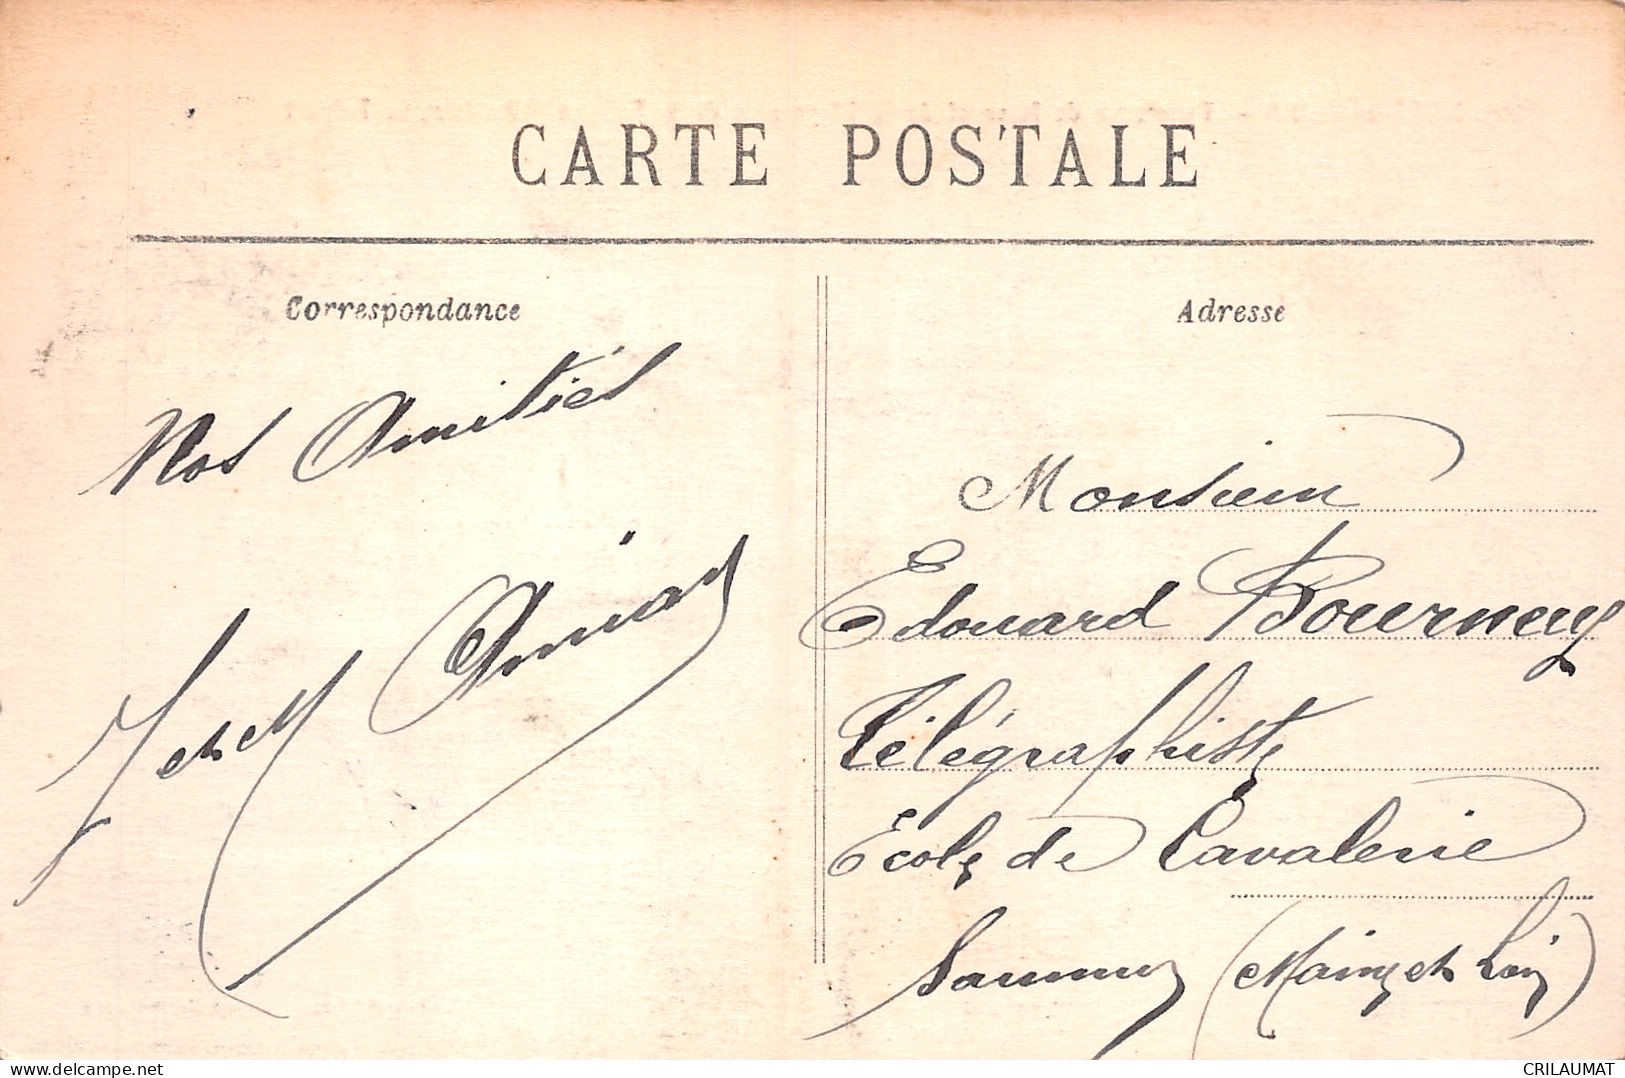 CARTE POSTALE
Correspondance
Adresse
Nos Amitiés
J et M
Monsieur
Edouard Bourneuf
Télégraphiste
Ecole de Cavalerie
Saumur (Maine et Loire)
delcampe.net
CRILAUMAT